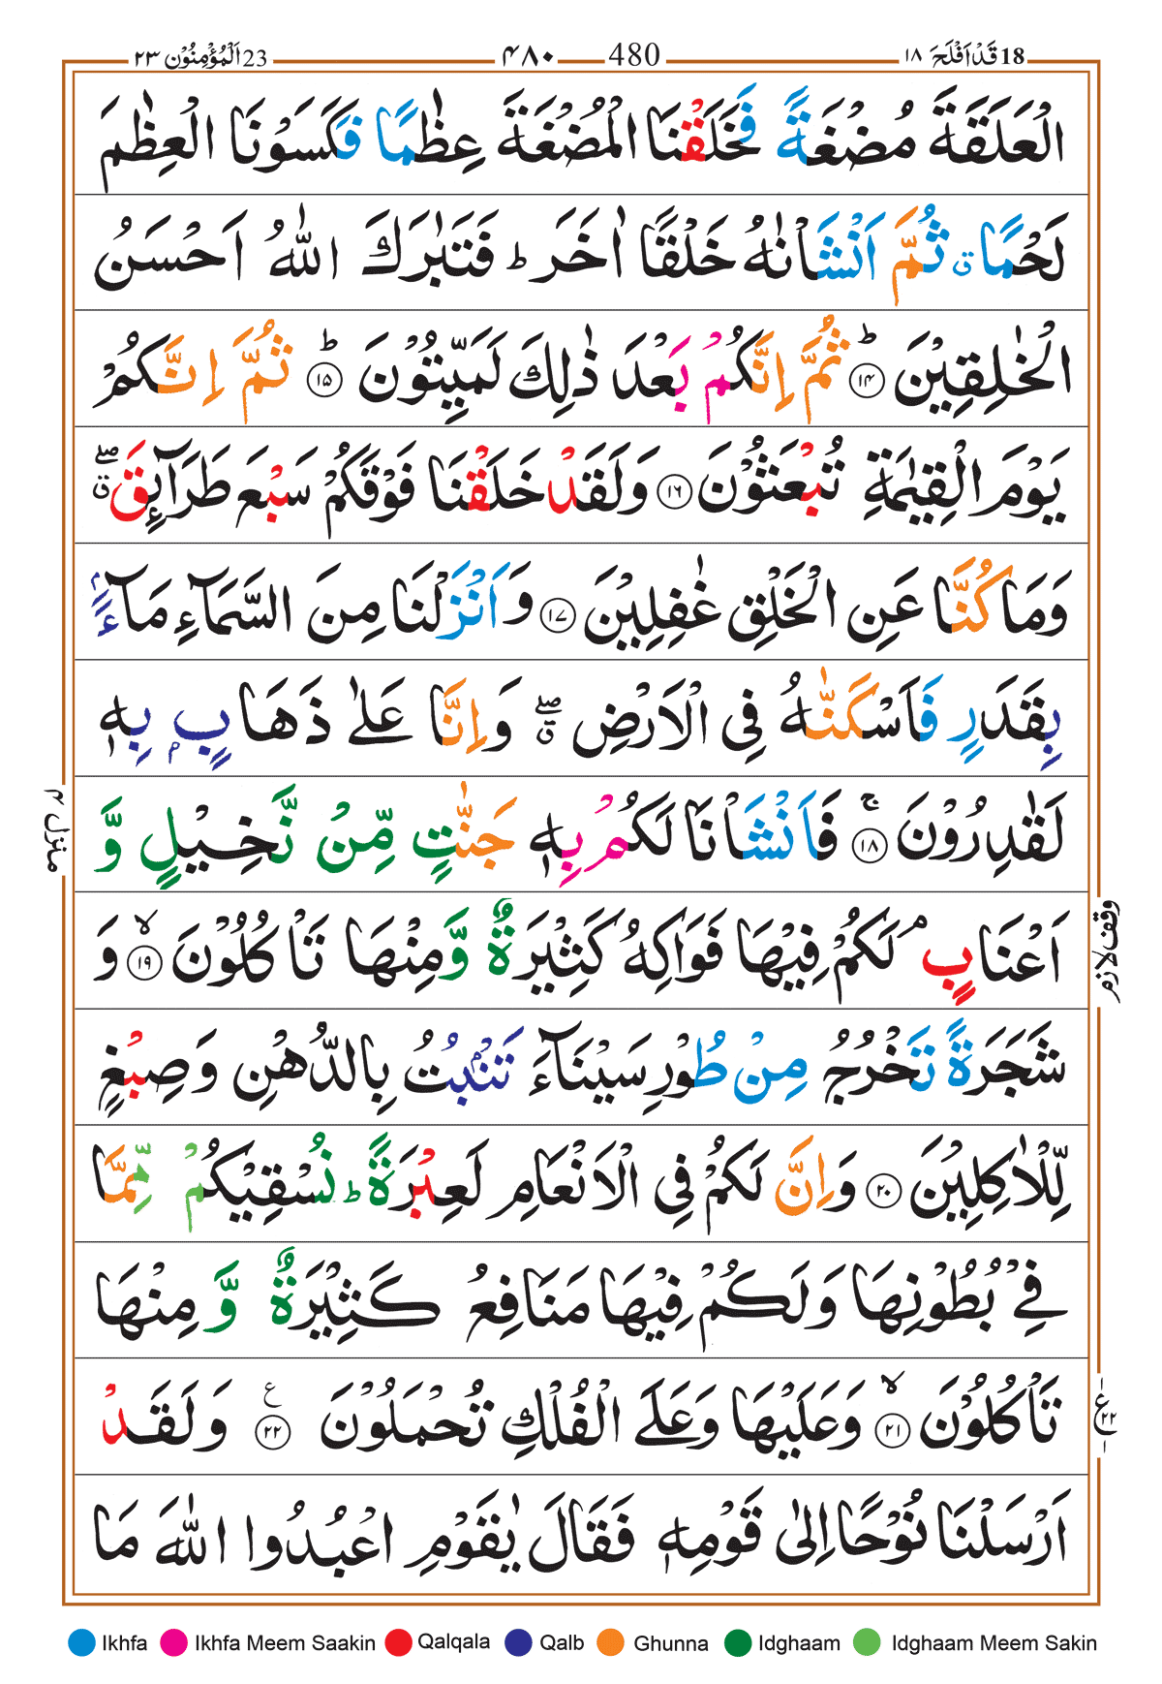 18 قَدْ اَفْلَحَ ١٨ 480 ۴۸۰ 23 اَلْمُؤْمِنُوْن ٢٣
الْعَلَقَةَ مُضْغَةً فَخَلَقْنَا الْمُضْغَةَ عِظٰمًا فَكَسَوْنَا الْعِظٰمَ
لَحْمًا ۗ ثُمَّ اَنْشَاْنٰهُ خَلْقًا اٰخَرَ ؕ فَتَبٰرَكَ اللّٰهُ اَحْسَنُ
الْخٰلِقِيْنَ ؕ ﴿۱۴﴾ ثُمَّ اِنَّكُمْ بَعْدَ ذٰلِكَ لَمَيِّتُوْنَ ؕ ﴿۱۵﴾ ثُمَّ اِنَّكُمْ
يَوْمَ الْقِيٰمَةِ تُبْعَثُوْنَ ﴿۱۶﴾ وَلَقَدْ خَلَقْنَا فَوْقَكُمْ سَبْعَ طَرَآئِقَ ۖۗ
وَمَا كُنَّا عَنِ الْخَلْقِ غٰفِلِيْنَ ﴿۱۷﴾ وَاَنْزَلْنَا مِنَ السَّمَآءِ مَآءًۢ
بِقَدَرٍ فَاَسْكَنّٰهُ فِى الْاَرْضِ ۖۗ وَاِنَّا عَلٰى ذَهَابٍۢ بِهٖ
لَقٰدِرُوْنَ ۚ ﴿۱۸﴾ فَاَنْشَاْنَا لَكُمْ بِهٖ جَنّٰتٍ مِّنْ نَّخِيْلٍ وَّ
اَعْنَابٍ ۘ لَكُمْ فِيْهَا فَوَاكِهُ كَثِيْرَةٌ وَّمِنْهَا تَاْكُلُوْنَ ۙ ﴿۱۹﴾ وَ
شَجَرَةً تَخْرُجُ مِنْ طُوْرِ سَيْنَآءَ تَنْۢبُتُ بِالدُّهْنِ وَصِبْغٍ
لِّلْاٰكِلِيْنَ ﴿۲۰﴾ وَاِنَّ لَكُمْ فِى الْاَنْعَامِ لَعِبْرَةً ؕ نُسْقِيْكُمْ مِّمَّا
فِىْ بُطُوْنِهَا وَلَكُمْ فِيْهَا مَنَافِعُ كَثِيْرَةٌ وَّمِنْهَا
تَاْكُلُوْنَ ۙ ﴿۲۱﴾ وَعَلَيْهَا وَعَلَى الْفُلْكِ تُحْمَلُوْنَ ﴿۲۲﴾ ع وَلَقَدْ
اَرْسَلْنَا نُوْحًا اِلٰى قَوْمِهٖ فَقَالَ يٰقَوْمِ اعْبُدُوا اللّٰهَ مَا
منزل ۴
وقف لازم
ع ۲۲
Ikhfa Ikhfa Meem Saakin Qalqala Qalb Ghunna Idghaam Idghaam Meem Sakin